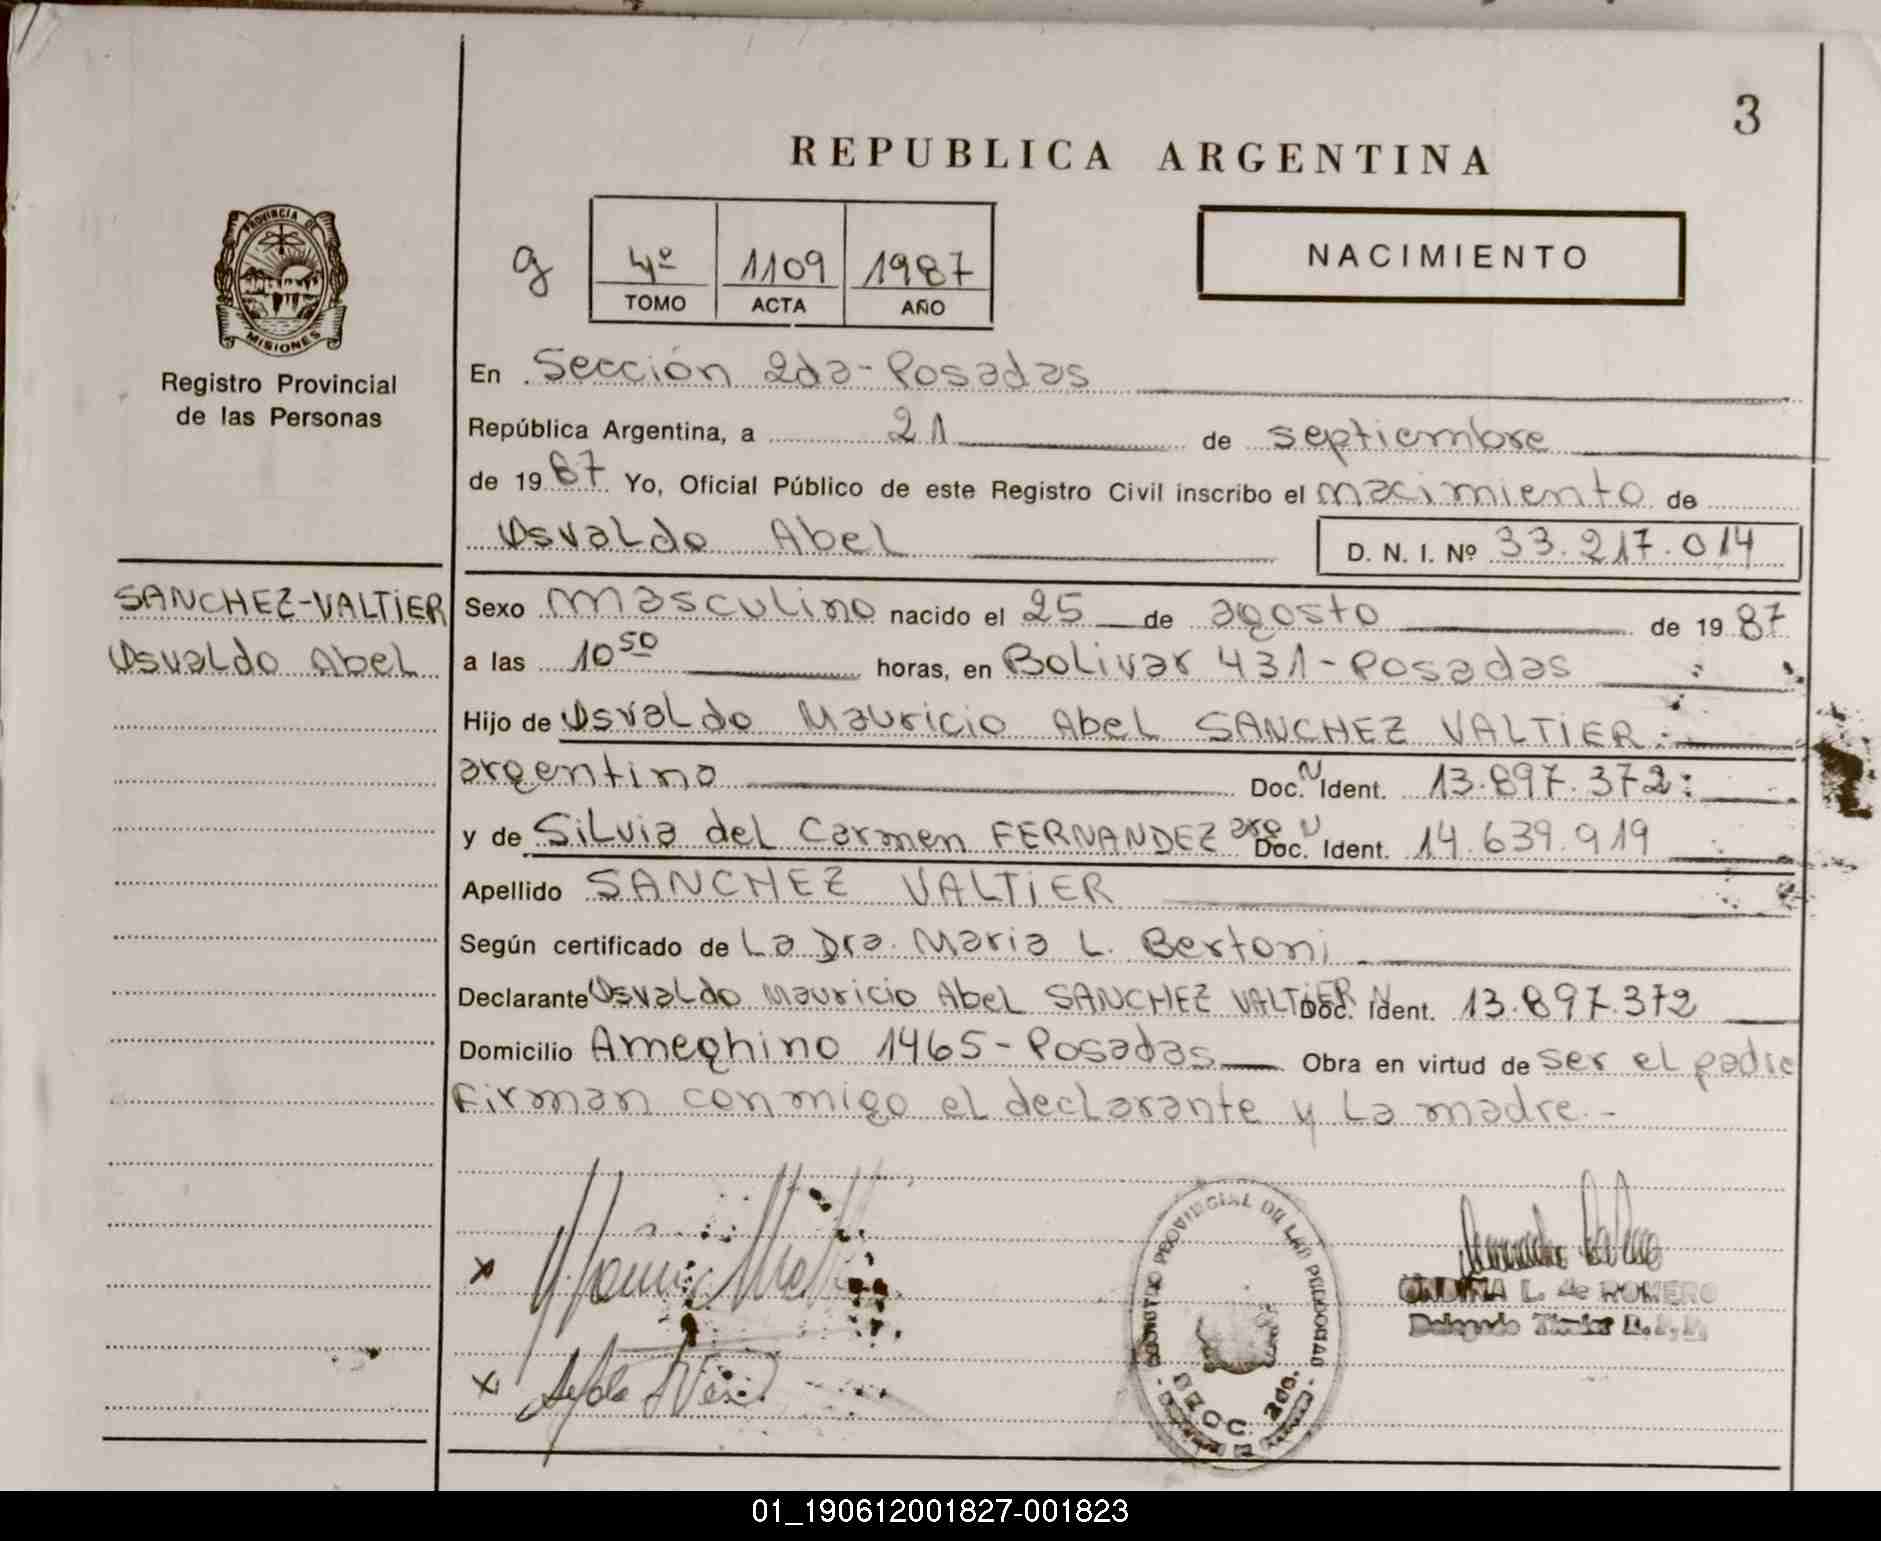 3
REPUBLICA ARGENTINA
PROVINCIA DE
MISIONES
Registro Provincial
de las Personas
g
4º 1109 1987
TOMO ACTA AÑO
NACIMIENTO
En Sección 2da-Posadas
República Argentina, a 21 de septiembre
de 1987 Yo, Oficial Público de este Registro Civil inscribo el nacimiento de
Osvaldo Abel D. N. I. Nº 33.217.014
SANCHEZ-VALTIER
Osvaldo Abel
Sexo masculino nacido el 25 de agosto de 1987
a las 10 50 horas, en Bolivar 431-Posadas
Hijo de Osvaldo Mauricio Abel SANCHEZ VALTIER:
argentino Doc. N Ident. 13.897.372:
y de Silvia del Carmen FERNANDEZ arg Doc. N Ident. 14.639.919
Apellido SANCHEZ VALTIER
Según certificado de La Dra. Maria L. Bertoni
Declarante Osvaldo Mauricio Abel SANCHEZ VALTIER Doc. N Ident. 13.897.372
Domicilio Ameghino 1465-Posadas Obra en virtud de ser el padre
Firman conmigo el declarante y La madre.-
x
x
REGISTRO PROVINCIAL DE LAS PERSONAS
SECC. 2da.
ONDINA L. de ROMERO
Delegado Titular R.P.P.
01_190612001827-001823